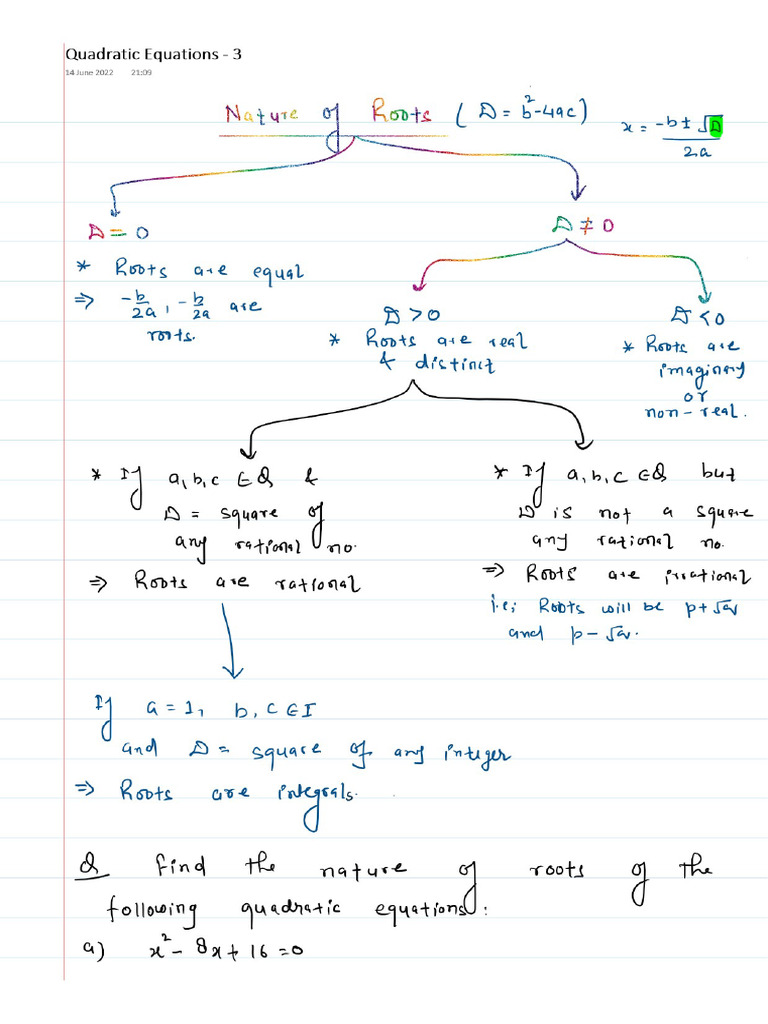 Quadratic Equations - 3
14 June 2022 21:09
Nature of Roots ( D = b²-4ac)
x = -b ± √D / 2a
D = 0
D ≠ 0
* Roots are equal
⇒ -b/2a, -b/2a are
roots.
D > 0
* Roots are real
& distinct
D < 0
* Roots are
imaginary
or
non-real.
* If a, b, c ∈ Q &
D = square of
any rational no.
⇒ Roots are rational
* If a, b, c ∈ Q but
D is not a square
any rational no.
⇒ Roots are irrational
i.e; Roots will be p+√q
and p-√q.
If a = 1, b, c ∈ I
and D = square of any integer
⇒ Roots are integrals.
Q Find the nature of roots of the
following quadratic equations:
a) x² - 8x + 16 = 0